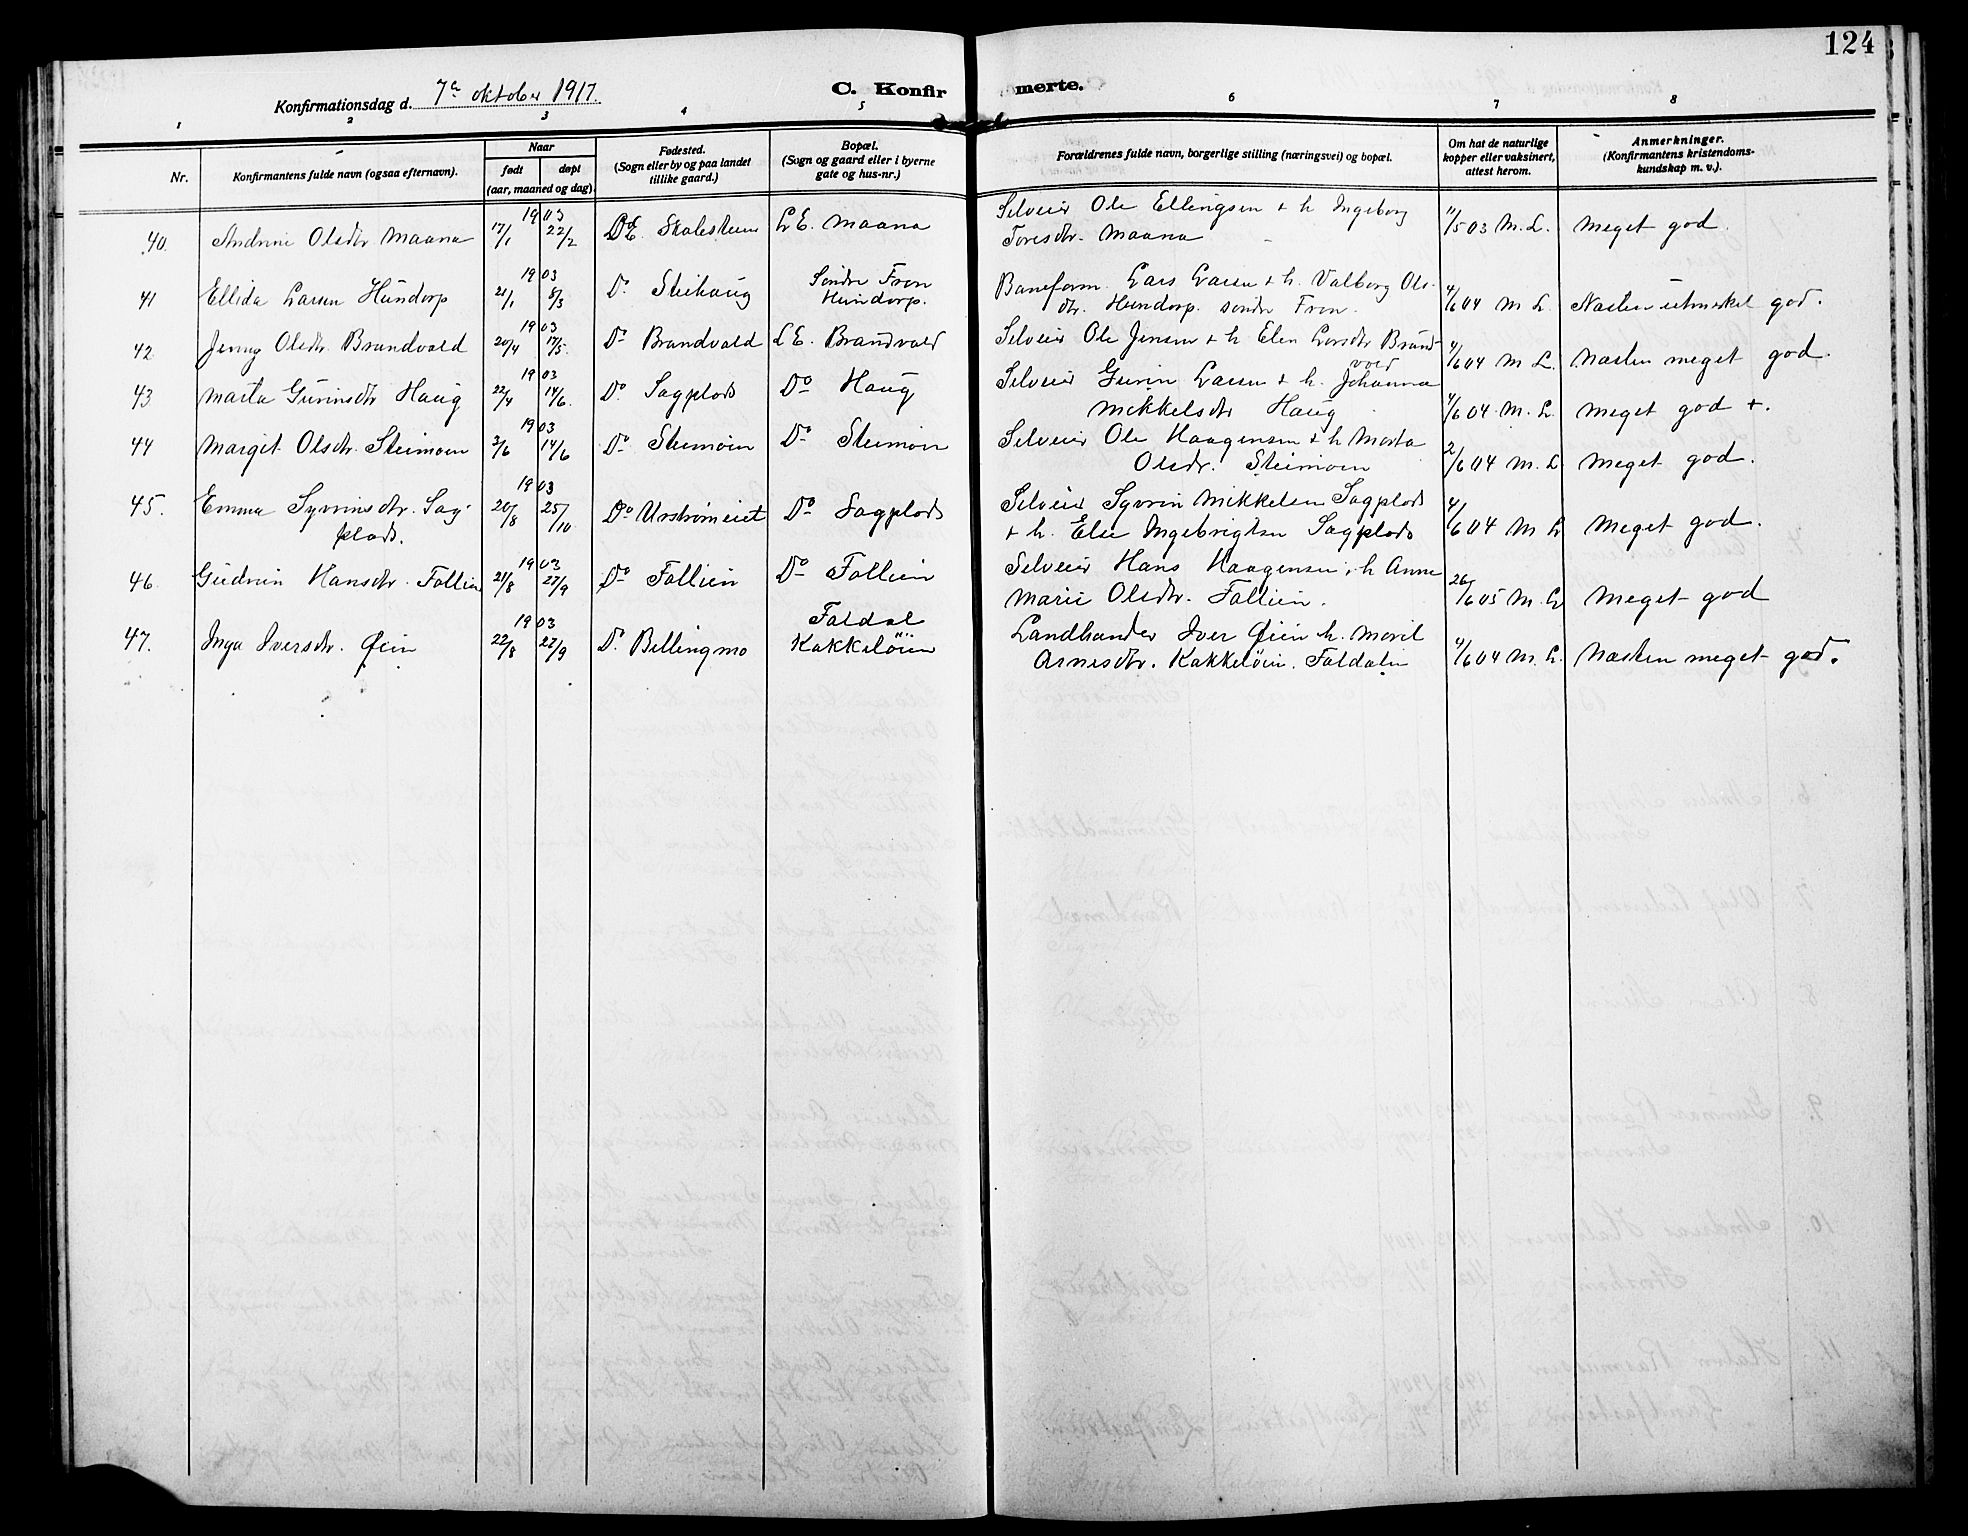 124
Konfirmationsdag d. 7de oktober 1917.
C. Konfirmerte.
1 2 3 4 5 6 7 8
Nr.
Konfirmantens fulde navn (ogsaa efternavn).
Naar
født
døpt
(aar, maaned og dag).
Fødested.
(Sogn eller by og paa landet
tillike gaard.)
Bopæl.
(Sogn og gaard eller i byerne
gate og hus-nr.)
Forældrenes fulde navn, borgerlige stilling (næringsvei) og bopæl.
Om hat de naturlige
kopper eller vaksinert,
attest herom.
Anmerkninger.
(Konfirmantens kristendoms-
kundskap m. v.).
40. Andrine Olsdtr. Maana 1903 17/1 22/2 L.E. Maana
Selveier Ole Ellingsen + h. Ingeborg
Toresdtr. Maana
11/5 03 M. L. Meget god.
41 Ellida Larsen Hundorp 1903 21/1 8/3 Do Steihaug Søndre Fron
Hundorp.
Baneform. Lars Larsen + h. Valborg Ols-
dtr. Hundorp. søndre Fron.
4/6 04 M L. Næsten utmerket god.
42. Jenny Olsdtr. Brandvold 1903 20/4 17/5. Do Brandvold L.E. Brandvold
Selveier Ole Jensen + h. Elen Larsdtr Brand-
vold
4/6 04 M L. Næsten meget god.
43 Marta Gurinsdtr Haug 1903 22/4 14/6. Do Sagplads Do Haug
Selveier Gurin Larsen + h. Johanna
Mikkelsdtr Haug
4/6 04 M. L. Meget god +.
44 Margit Olsdtr. Steimoen 1903 3/6 14/6 Do Steimoen Do Steimoen
Selveier Ole Haagensen + h Marta
Olsdr. Steimoen
2/6 04 M. L Meget god.
45. Emma Syvrinsdtr. Sag-
plads. 1903 20/8 25/10 Do Do Sagplads
Selveier Syvrin Mikkelsen Sagplads
+ h. Elie Ingebrigtsn Sagplads
4/6 04 M L Meget god.
46. Gudrun Hansdtr. Follien 1903 21/8 27/9 Do Follien Do Follien
Selveier Hans Haagensen + h Anne
Marie Olsdtr. Follien.
26/6 05 M. L Meget god
47. Inga Iversdtr. Øien 1903 22/8 27/9 Do Billingmo Foldal
Kakkeløien
Landhandler Iver Øien h. Marit
Arnesdtr. Kakkeløien. Foldalen
4/6 04 M. L. Næsten meget god.